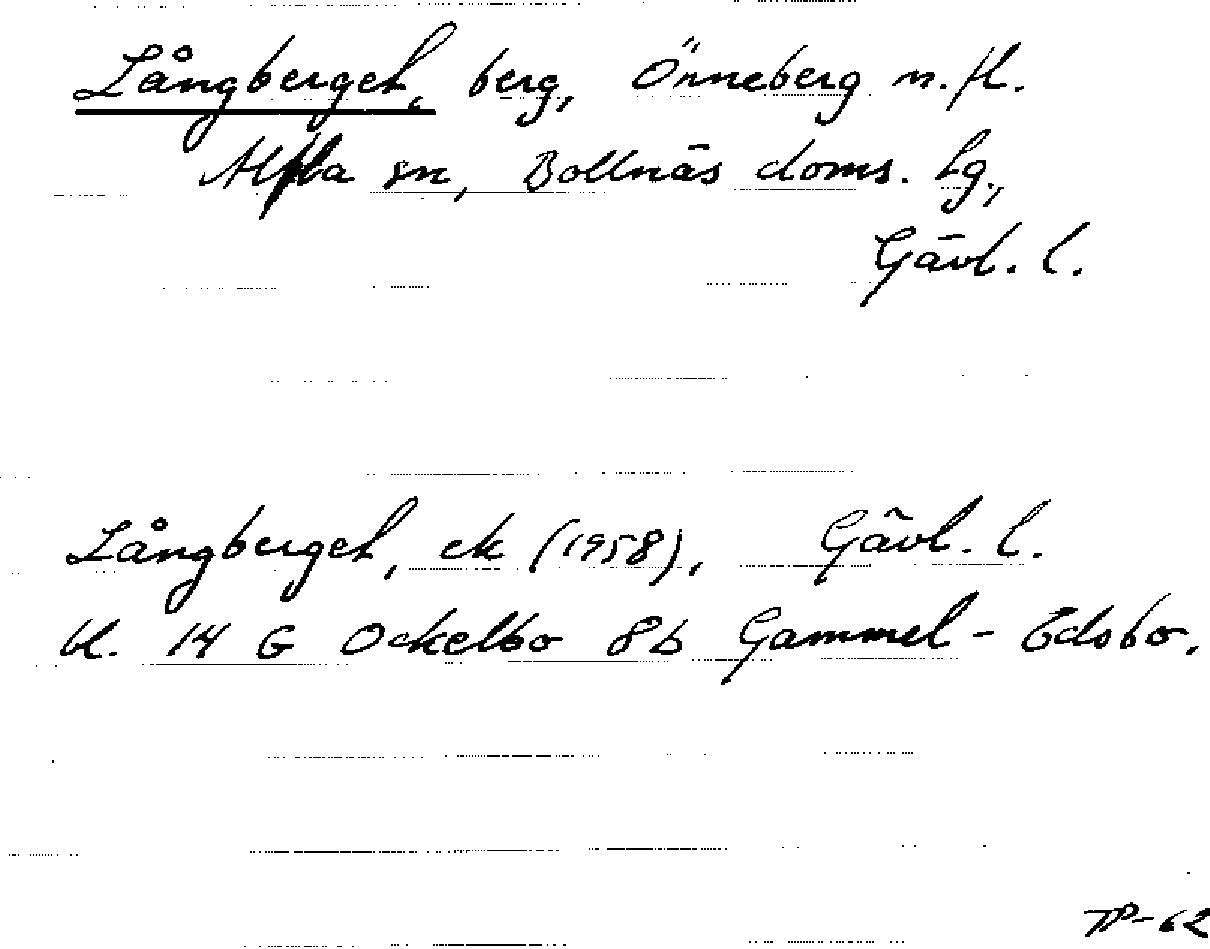 Långberget, berg, Önneberg m.fl.
Alfta sn, Bollnäs doms. lg.,
Gävl. l.
Långberget, ek (1958), Gävl. l.
bl. 14 G Ockelbo 8b Gammel-Edsbo.
TP-62